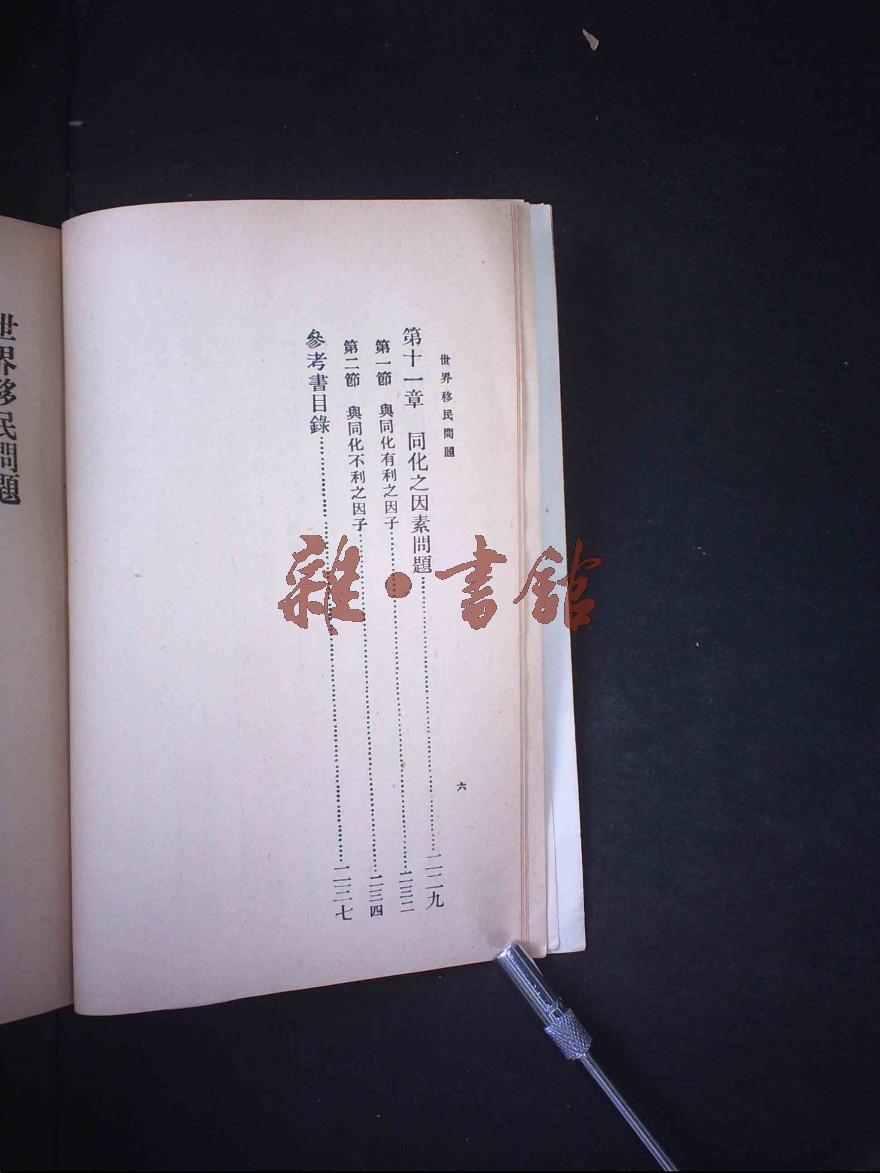 世界移民問題
六
第十一章　同化之因素問題…………二二九
第一節　與同化有利之因子…………二三二
第二節　與同化不利之因子…………二三四
參考書目錄…………二三七
世界移民問題
雜·書館